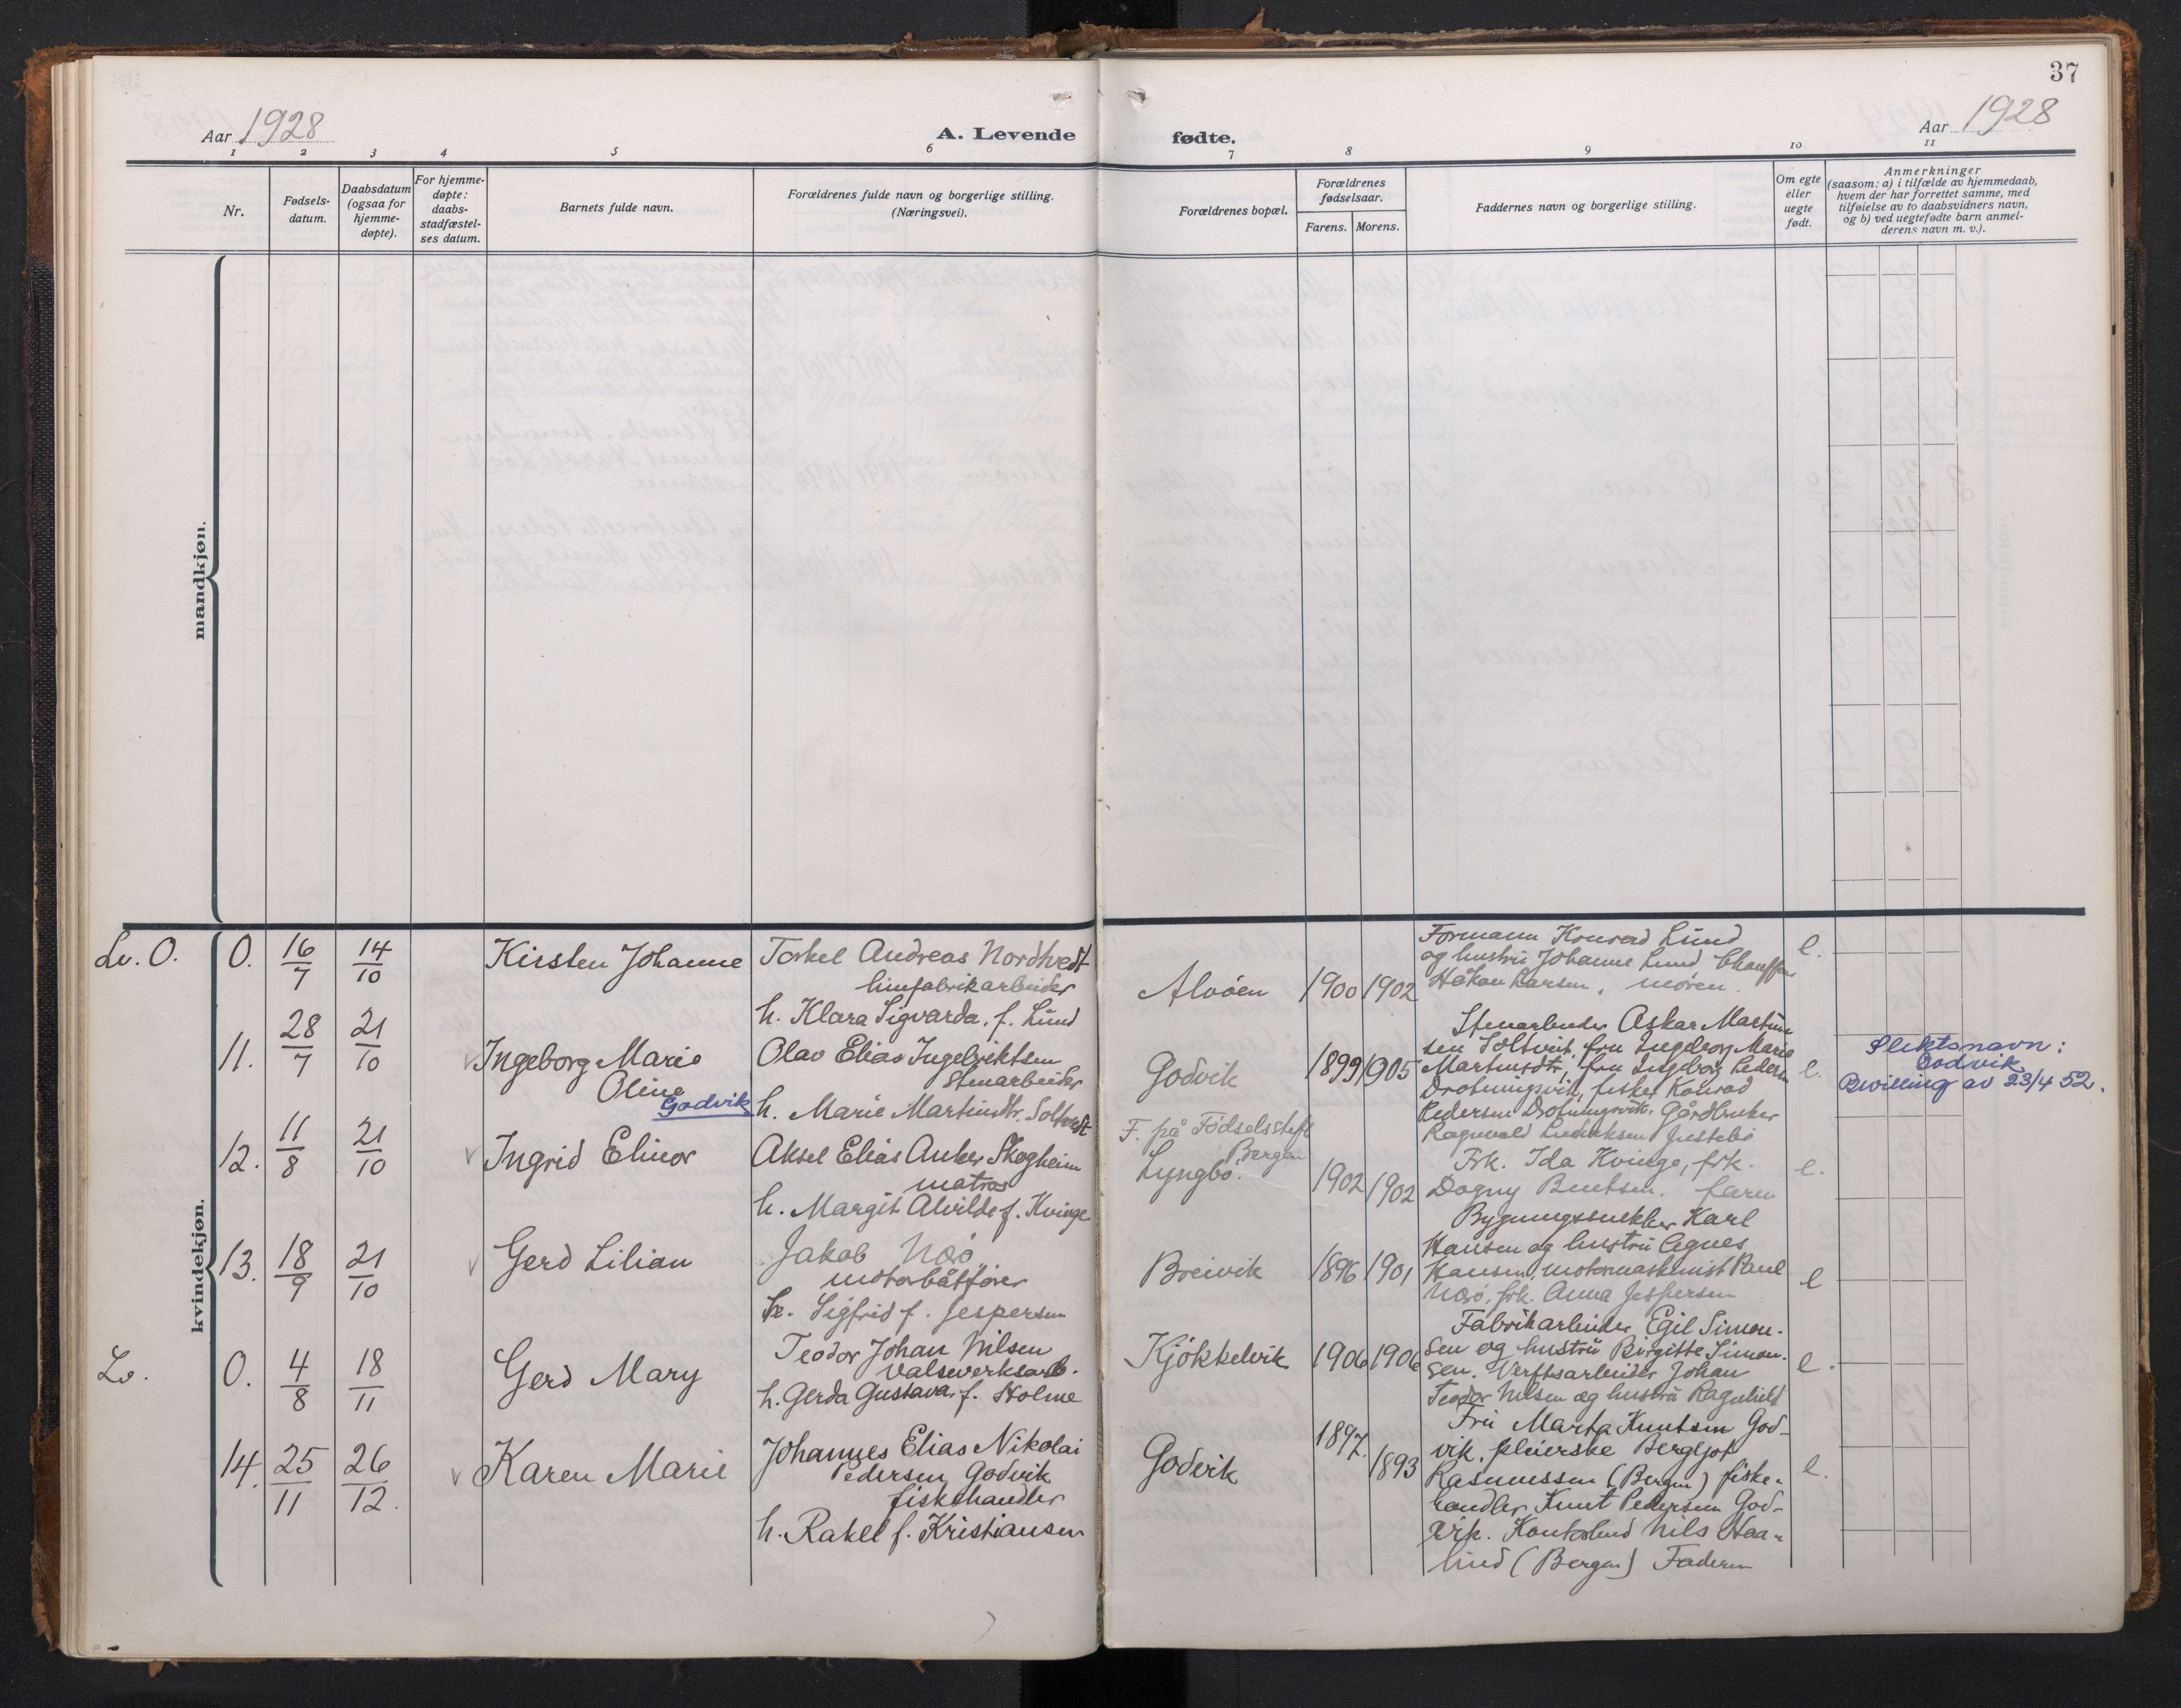 37
Aar 1928
A. Levende
fødte.
Aar 1928
1 2 3 4 5 6 7 8 9 10 11
Nr.
Fødsels-
datum.
Daabsdatum
(ogsaa for
hjemme-
døpte).
For hjemme-
døpte:
daabs-
stadfæstel-
ses datum.
Barnets fulde navn.
Forældrenes fulde navn og borgerlige stilling.
(Næringsvei).
Forældrenes bopæl.
Forældrenes
fødselsaar.
Farens. Morens.
Faddernes navn og borgerlige stilling.
Om egte
eller
uegte
født.
Anmerkninger
(saasom: a) i tilfælde av hjemmedaab,
hvem der har forrettet samme, med
tilføielse av to daabsvidners navn,
og b) ved uegtefødte barn anmel-
derens navn m. v.).
mandkjøn.
kvindekjøn.
Lv. O. O. 16/7 14/10
Kirsten Johanne
Torkel Andreas Nordtvedt
limfabrikarbeider
h. Klara Sigvarda, f. Lund
Alvøen 1900 1902
Formann Konrad Lund
og hustru Johanne Lund, Chauffør
Håkon Larsen, moren.
e.
11. 28/7 21/10
Ingeborg Marie
Oline
Godvik
Olav Elias Ingebriktsen
Stenarbeider
h. Marie Martinsdtr. Soltvedt
Godvik 1899 1905
Stenarbeider Askar Martin-
sen Soltveit, fru Ingeborg Marie
Martinsdtr, fru Ingeborg Pedersen
Drotningsvik, fisker Konrad
Pedersen Drotningsvik. Gårdbruker
Ragnvald Ludviksen
e.
Slektsnavn:
Godvik
Bevilling av 23/4 52.
12. 11/8 21/10
Ingrid Elinor
Aksel Elias Anker Skogheim
matros
h. Margit Alvilde f. Kvinge
F. på Fødselsstift
Bergen
Lyngbø. 1902 1902
Frk. Ida Kvinge, frk.
Dagny Bentsen. faren
e.
13. 18/9 21/10
Gerd Lilian
Jakob Nesø
motorbåtfører
h. Sigfrid f. Jespersen
Breivik 1896 1901
Bygningssnekker Karl
Hansen og hustru Agnes
Hansen, motormaskinist Paul
Nesø, frk. Anna Jespersen
e
Lv. O. 4/8 18/11
Gerd Mary
Teodor Johan Nilsen
Valseverksarb.
h. Gerda Gustava, f. Holme
Kjøkkelvik 1906 1906
Fabrikarbeider Egil Simon-
sen og hustru Birgitte Simon-
sen. Verftsarbeider Johan
Teodor Nilsen og hustru Ragnhild
e.
14. 25/11 26/12.
Karen Marie
Johannes Elias Nikolai
Pedersen Godvik
fiskehandler
h. Rakel f. Kristiansen
Godvik 1897. 1893
Fru Marta Knutsen God-
vik, pleierske Bergljot
Rasmussen (Bergen) fiske-
handler Knut Pedersen God-
vik. Kontorbud Nils Haa-
lind (Bergen) Faderen
e.